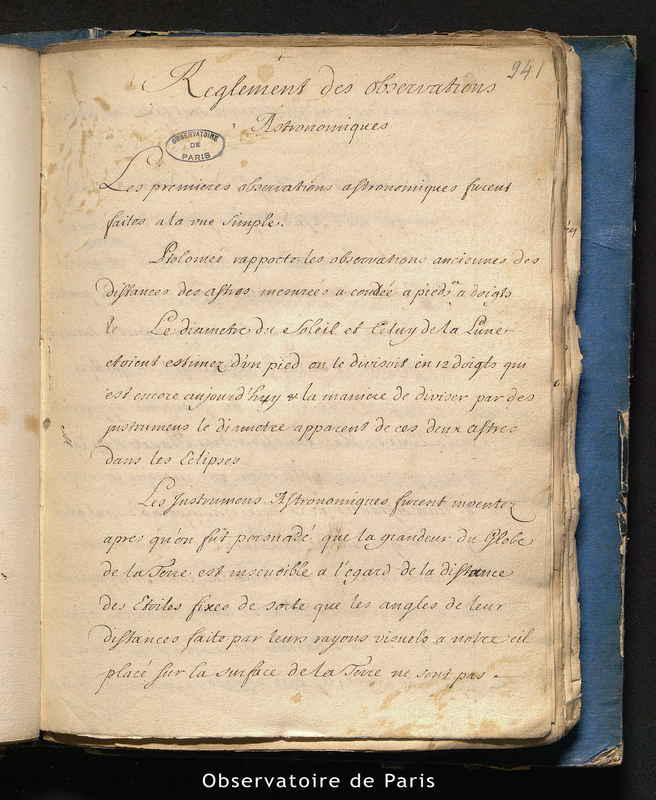 241
Reglement des observations
Astronomiques
OBSERVATOIRE
DE
PARIS
Les premieres observations astronomiques furent
faites a la vue simple.
Ptolomée rapporte les observations anciennes des
distances des astres mesurées a coudée a pieds a doigts
le Le diametre du Soleil et Celuy de la Lune
etoient estimez d'un pied on le divisoit en 12 doigts qui
est encore aujourd'huy la maniere de diviser par des
jnstrumens le diametre apparent de ces deux astres
dans les Eclipses
Les Jnstrumens Astronomiques furent inventez
apres qu'on fut persuadé que la grandeur du Globe
de la Terre est insensible a l'egard de la distance
des Etoiles fixes de sorte que les angles de leur
distances faite par leurs rayons visuels a notre œil
placé sur la surface de la Terre ne sont pas
Observatoire de Paris